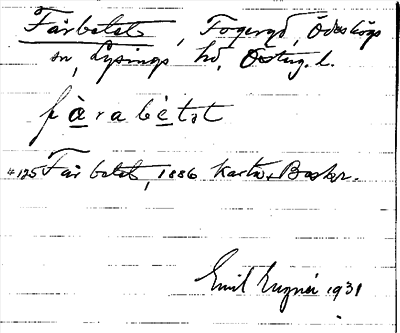 Fårbetet, Fogeryd, Ödeshögs
sn, Lysings hd, Östrg. l.
fàrabètət
*125 Fårbetet, 1886 Karta, Beskr.
Emil 1931